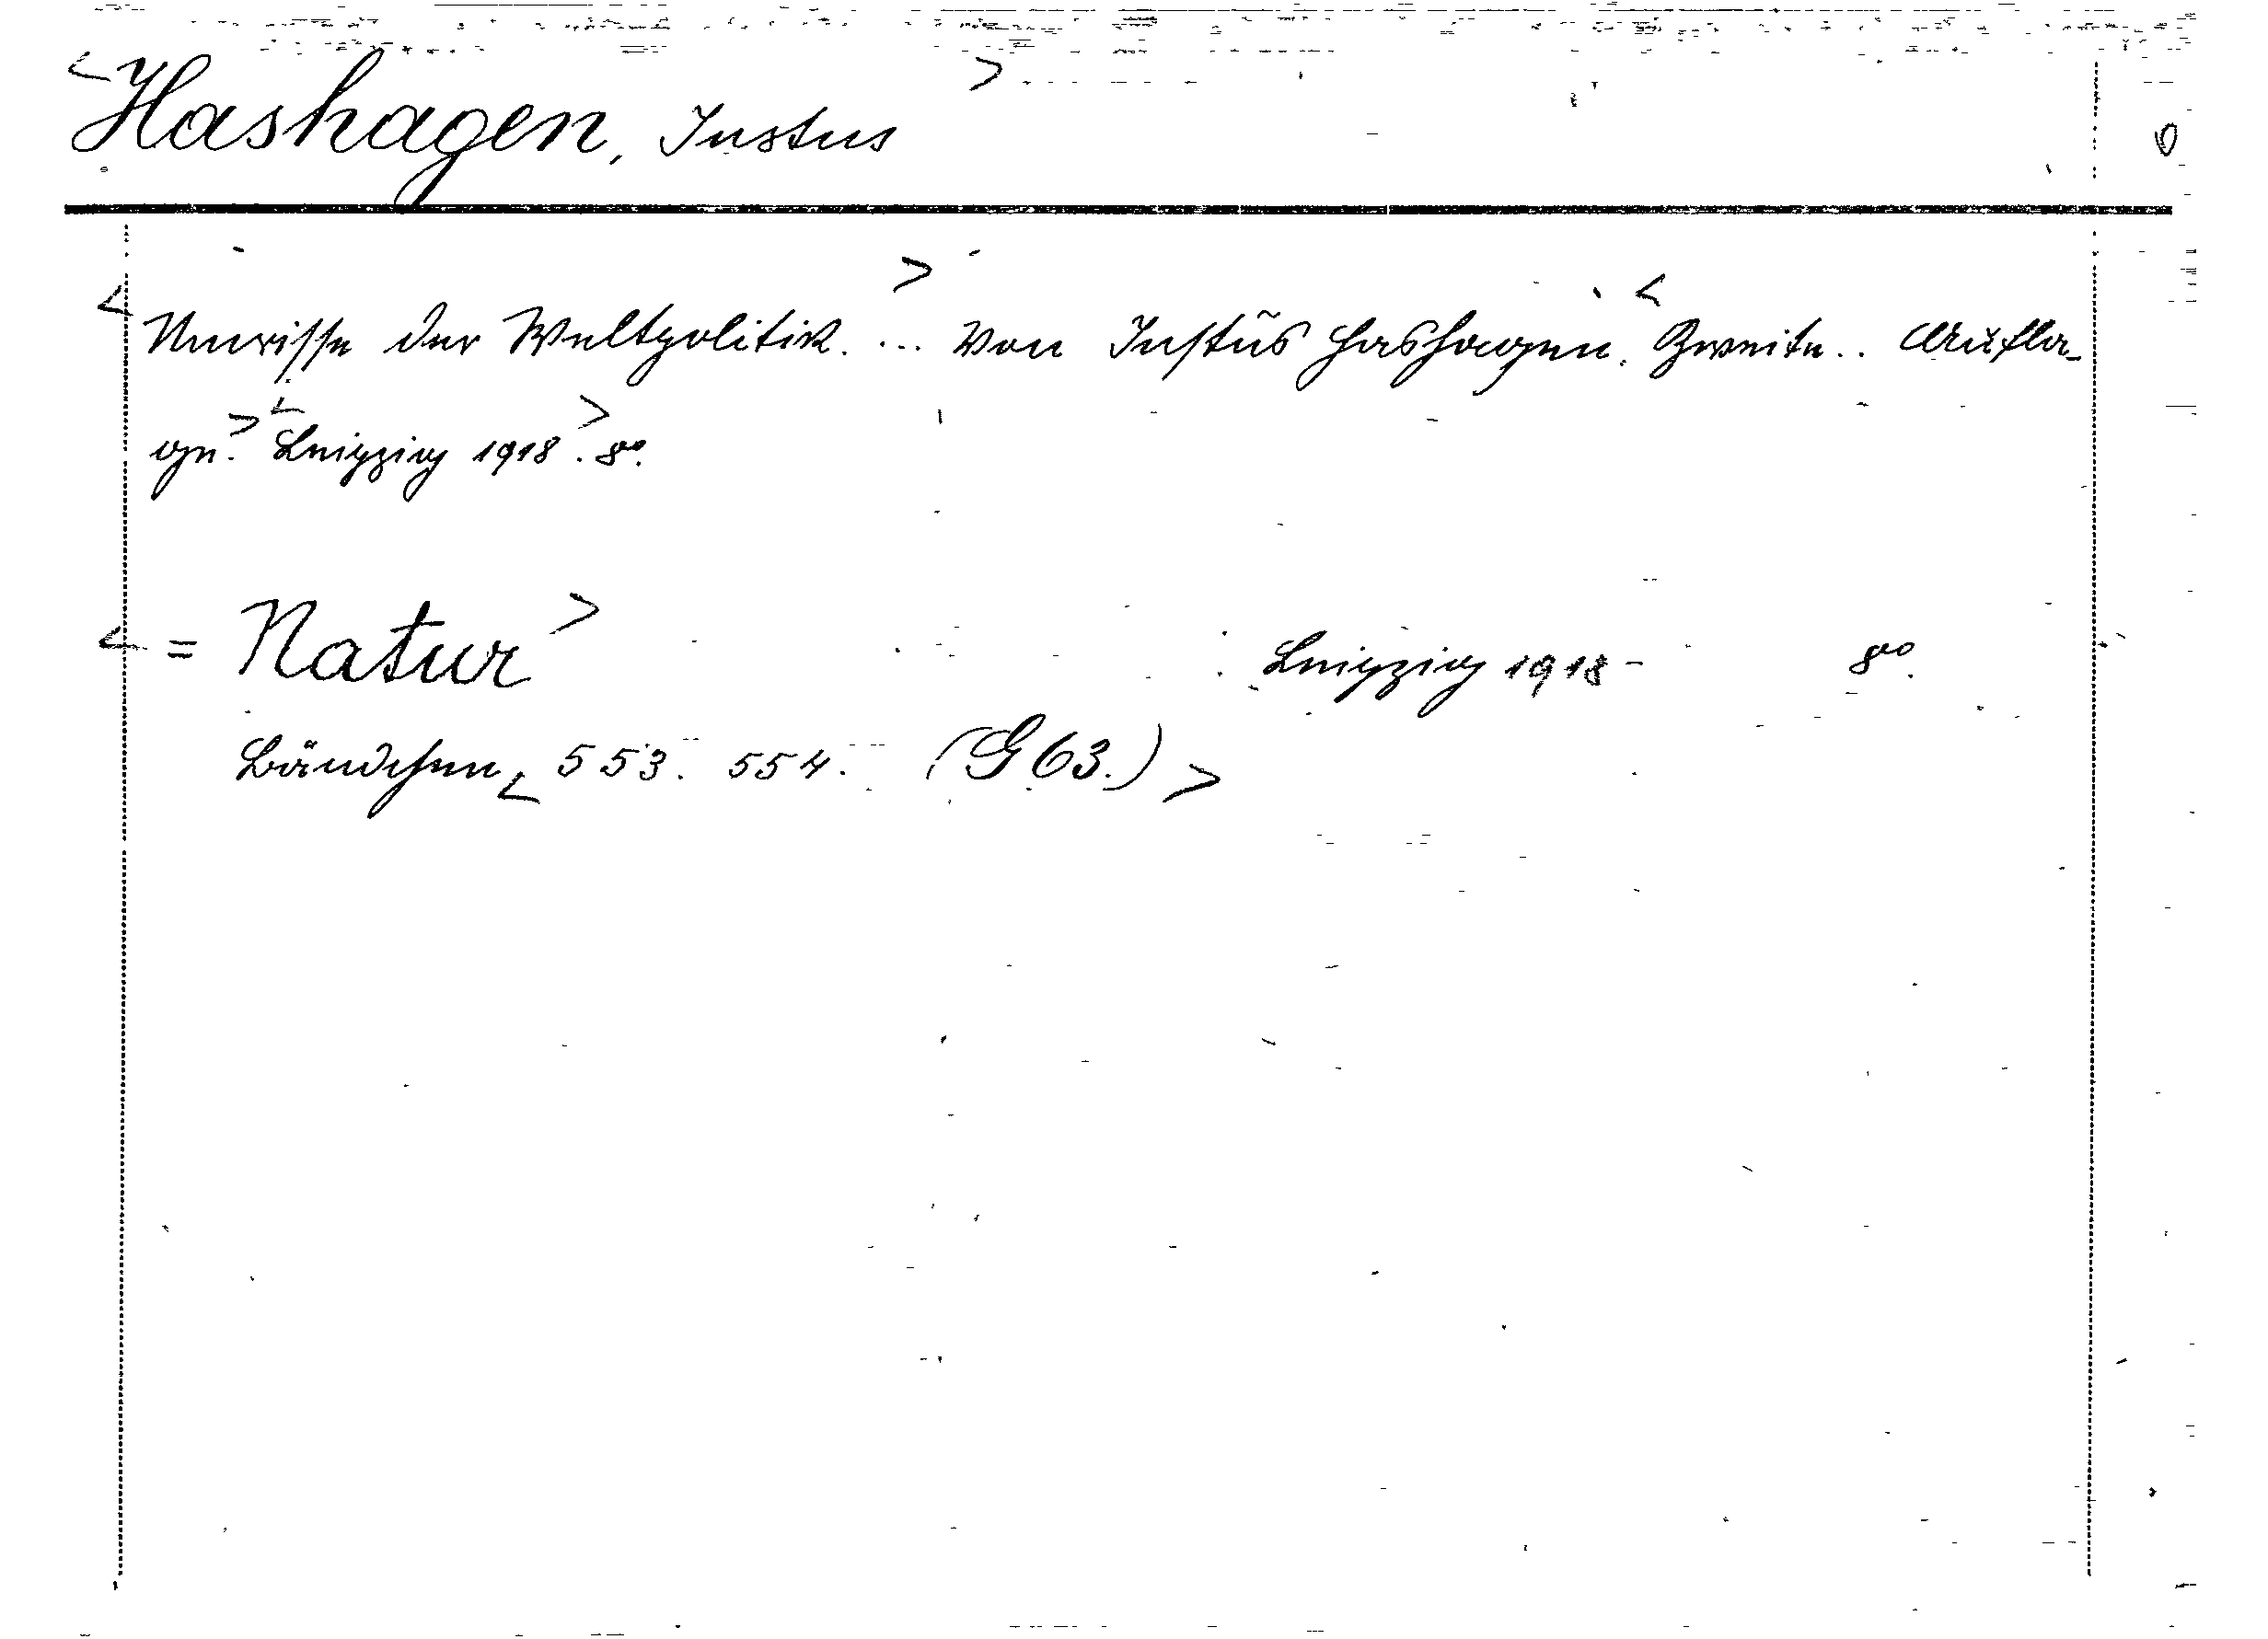 <Hashagen, Justus>
<Umrisse der Weltpolitik.> ... Von Justus Hashagen. <Zweite.. Aufla-
ge.> <Leipzig 1918>. 8°.
<= Natur> Leipzig 1918- 8°.
Bändchen <553. 554. (G 63.)>